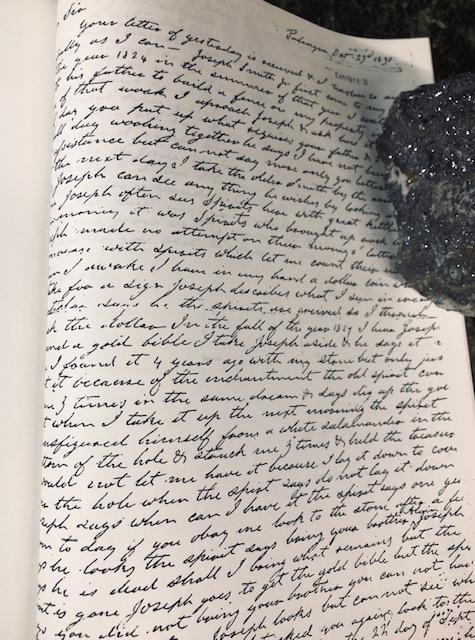 Palmyra Oct. 23d 1830
EXHIBIT D
Sir
your letter of yesterday is received & I hasten to an
ully as I can— Joseph Smith Jr first come to my
e year 1824 in the summer of that year I con
his father to build a fence on my property
of that work I aproach Joseph & ask
day you put up what requires your father &
ll day working together he says I have not
sistance but can not say more only you better
the next day I take the older Smith by the
Joseph can see any thing he wishes by looking
Joseph often sees Spirits here with great kettles
money it was Spirits who brought up rock
ph made no attempt on their money I latter
with spirits which let me count their
n I awake I have in my hand a dollar coin
ke for a sign Joseph describes what I seen in every
ticular says he the spirits are grieved so I through
k the dollar In the fall of the year 1827 I hear Joseph
und a gold bible I take Joseph aside & he says it i
I found it 4 years ago with my stone but only jus
t it because of the enchantment the old spirit com
me 3 times in the same dream & says dig up the gol
t when I take it up the next morning the spirit
nsfigured himself from a white salamander in the
tom of the hole & struck me 3 times & held the treasure
ould not let me have it because I lay it down to cover
r the hole when the spirit says do not lay it down
seph says when can I have it the spirit says one yea
m to day if you obay me look to the stone after a few
s he looks the spirit says bring your brother Alvin Joseph
s he is dead shall I bring what remains but the
it is gone Joseph goes to get the gold bible but the spi
s you did not bring your brother you can not hav
Joseph looks but can not see wh
you again look to the
day of Sept